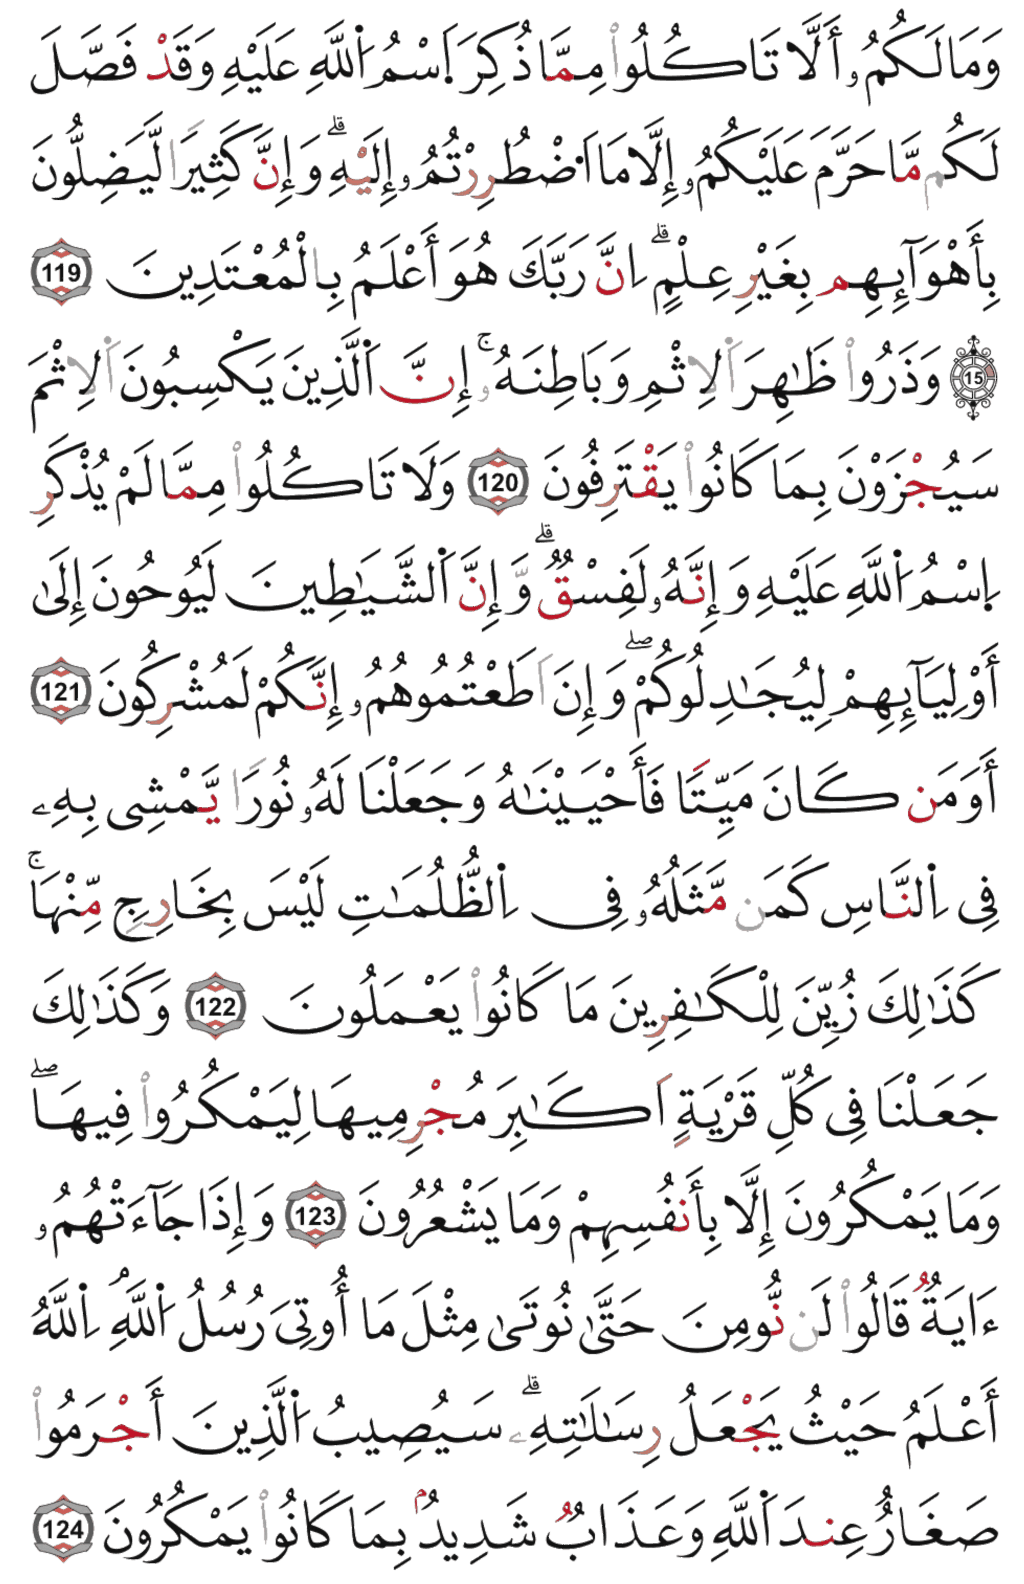 وَمَا لَكُمُۥ أَلَّا تَاكُلُواْ مِمَّا ذُكِرَ اَ۪سْمُ اُ۬للَّهِ عَلَيْهِ وَقَدْ فَصَّلَ
لَكُم مَّا حَرَّمَ عَلَيْكُمُۥ إِلَّا مَا اَ۟ضْطُرِرْتُمُۥ إِلَيْهِۖ وَإِنَّ كَثِيرًا لَّيَضِلُّونَ
بِأَهْوَآئِهِم بِغَيْرِ عِلْمٍۖ اِنَّ رَبَّكَ هُوَ أَعْلَمُ بِالْمُعْتَدِينَ 119
15 وَذَرُواْ ظَٰهِرَ اَ۬لِاثْمِ وَبَاطِنَهُۥٓۚ إِنَّ اَ۬لَّذِينَ يَكْسِبُونَ اَ۬لِاثْمَ
سَيُجْزَوْنَ بِمَا كَانُواْ يَقْتَرِفُونَ 120 وَلَا تَاكُلُواْ مِمَّا لَمْ يُذْكَرِ
اِ۪سْمُ اُ۬للَّهِ عَلَيْهِ وَإِنَّهُۥ لَفِسْقٌۖ وَإِنَّ اَ۬لشَّيَٰطِينَ لَيُوحُونَ إِلَىٰ
أَوْلِيَآئِهِمْ لِيُجَٰدِلُوكُمْۖ وَإِنَ اَطَعْتُمُوهُمُۥ إِنَّكُمْ لَمُشْرِكُونَ 121
أَوَمَن كَانَ مَيِّتًا فَأَحْيَيْنَٰهُ وَجَعَلْنَا لَهُۥ نُورًا يَّمْشِى بِهِۦ
فِى اِ۬لنَّاسِ كَمَن مَّثَلُهُۥ فِى اِ۬لظُّلُمَٰتِ لَيْسَ بِخَارِجٍ مِّنْهَاۚ
كَذَٰلِكَ زُيِّنَ لِلْكَٰفِرِينَ مَا كَانُواْ يَعْمَلُونَ 122 وَكَذَٰلِكَ
جَعَلْنَا فِى كُلِّ قَرْيَةٍ اَكَٰبِرَ مُجْرِمِيهَا لِيَمْكُرُواْ فِيهَاۖ
وَمَا يَمْكُرُونَ إِلَّا بِأَنفُسِهِمْ وَمَا يَشْعُرُونَ 123 وَإِذَا جَآءَتْهُمُۥ
ءَايَةٌ قَالُواْ لَن نُّومِنَ حَتَّىٰ نُوتَىٰ مِثْلَ مَا أُوتِىَ رُسُلُ اُ۬للَّهِ اِ۬للَّهُ
أَعْلَمُ حَيْثُ يَجْعَلُ رِسَالَٰتِهِۦۖ سَيُصِيبُ اُ۬لَّذِينَ أَجْرَمُواْ
صَغَارٌ عِندَ اَ۬للَّهِ وَعَذَابٌ شَدِيدٌۢ بِمَا كَانُواْ يَمْكُرُونَ 124